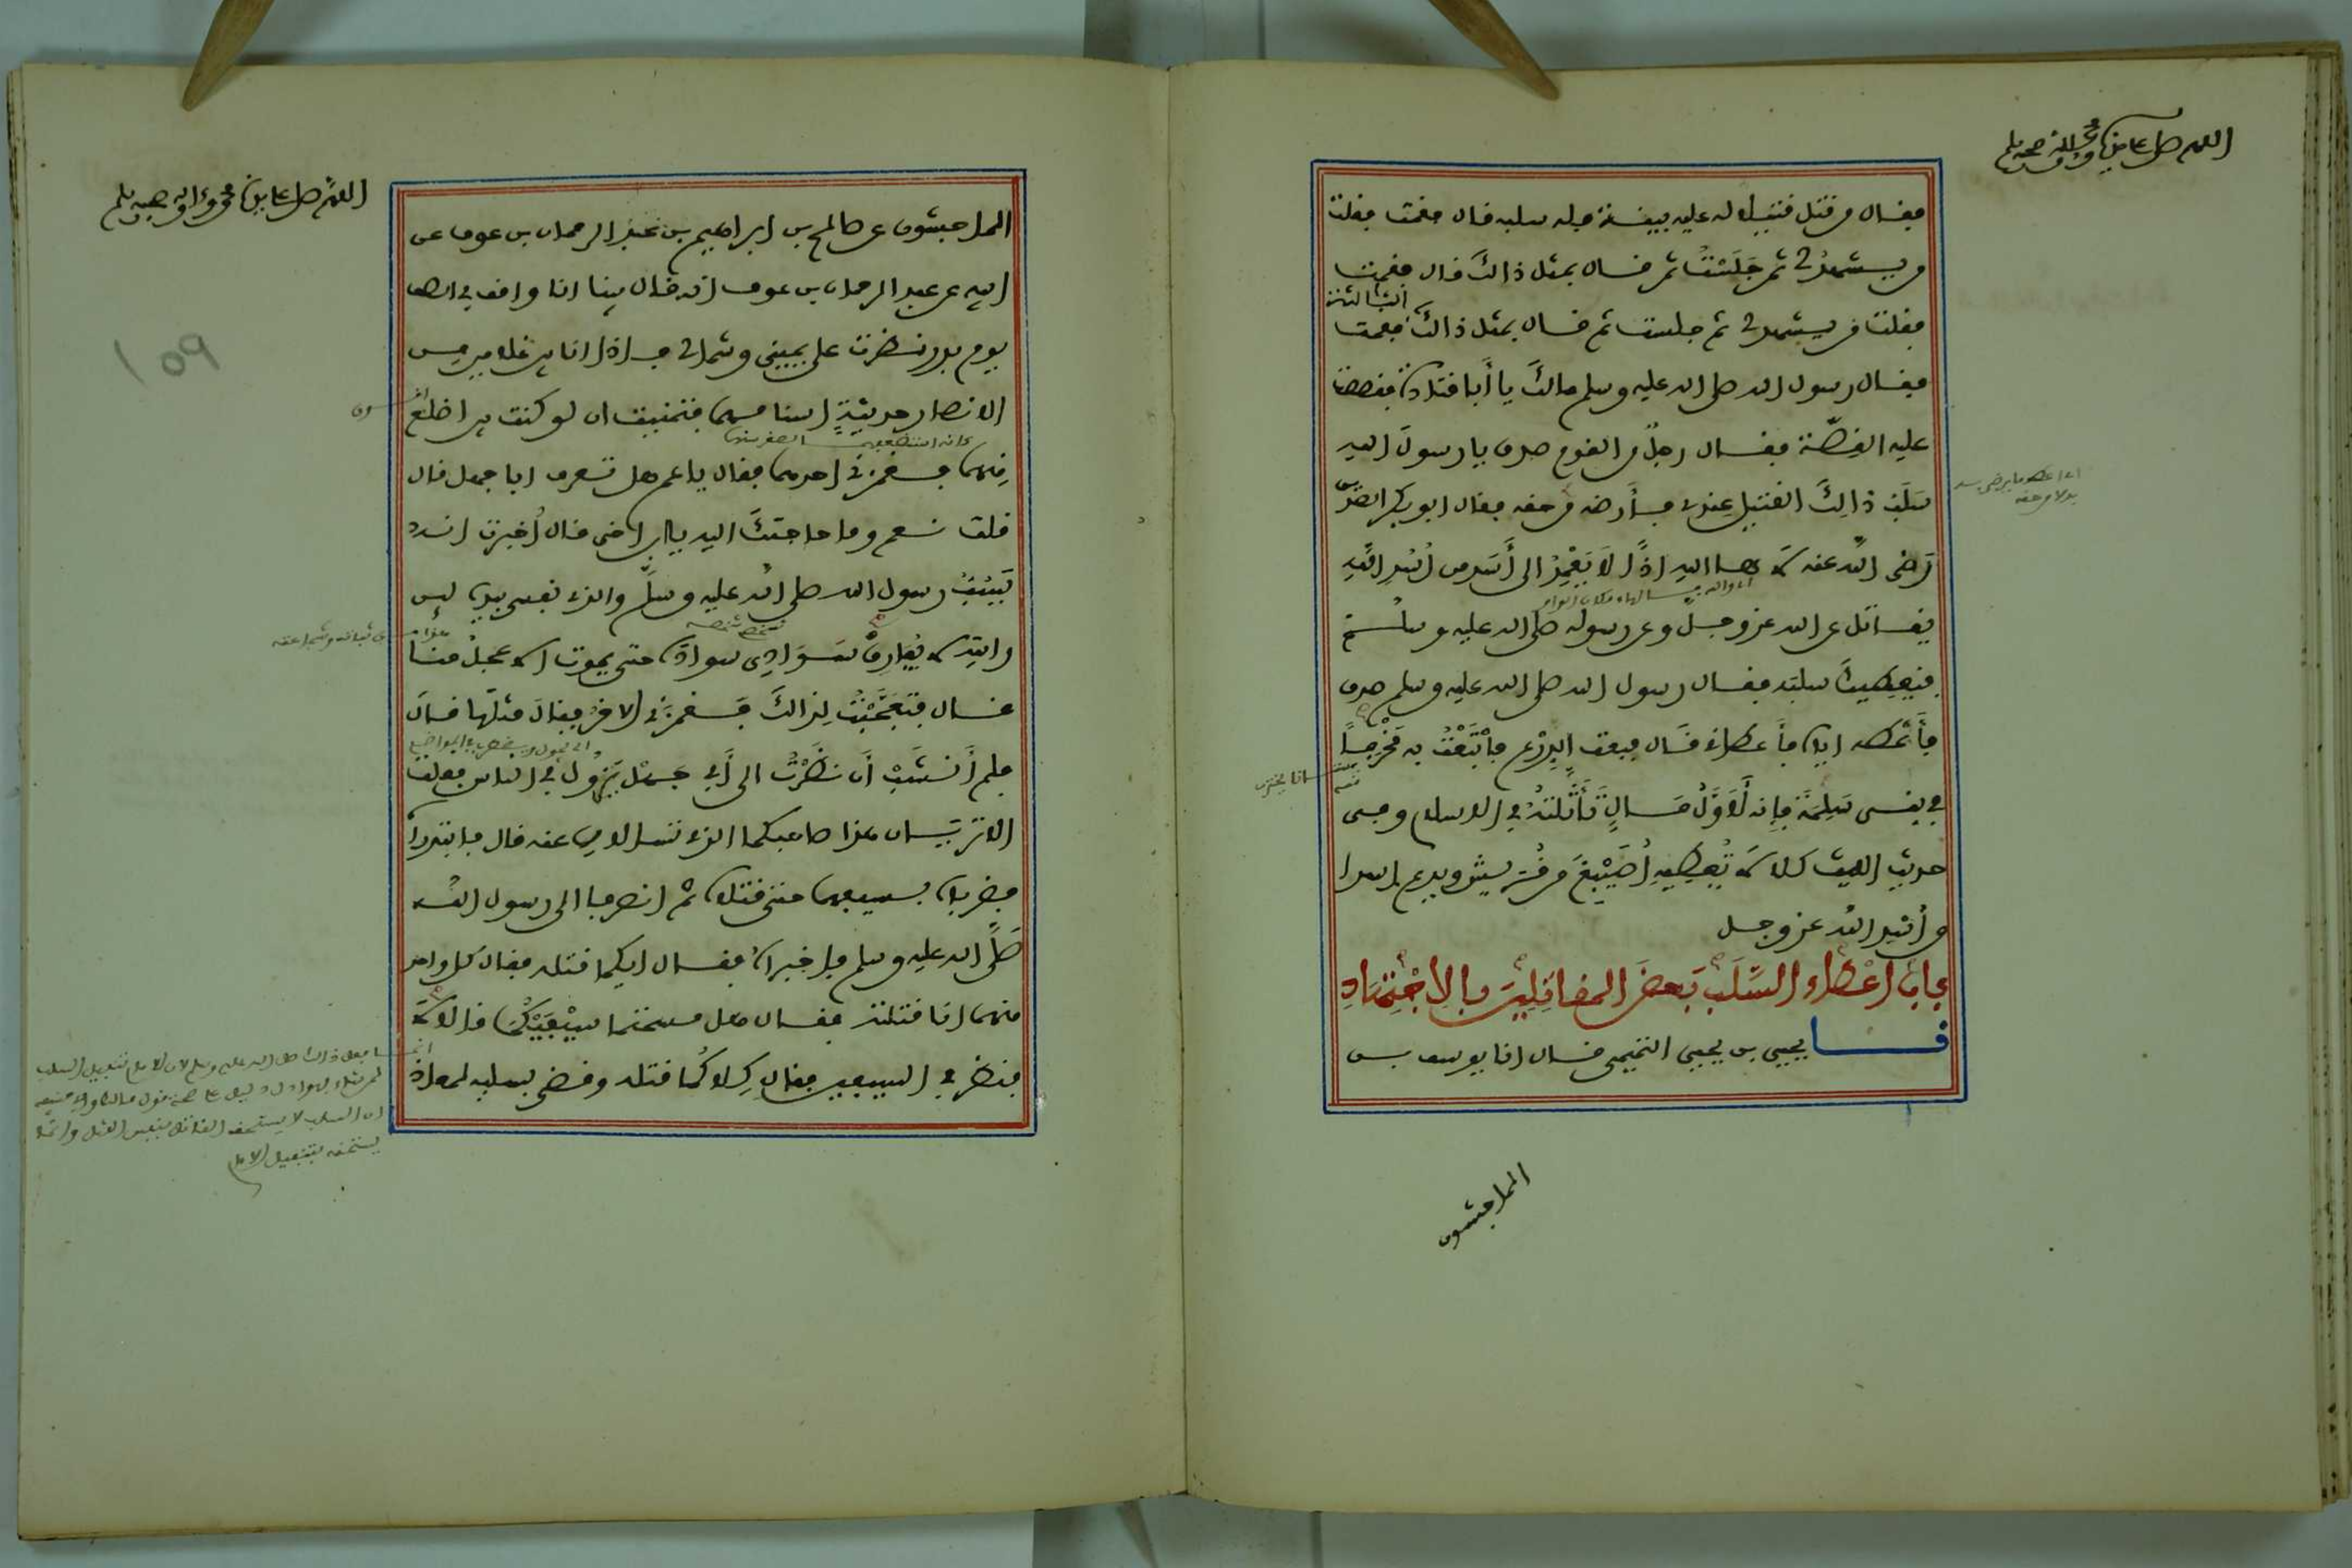 اللهم صل على سيدنا محمد وآله وصحبه وسلم
فقال من قتل قتيلا له عليه بينة فله سلبه قال فقمت فقلت
من يشهد لي ثم جَلَسْتُ ثم قال بمثل ذالكَ قال فقمت
فقلت من يشهد لي ثم جلست ثم قال بمثل ذالكَ الثالثة فقمت
فقال رسول الله صلى الله عليه وسلم مالكَ يا أبا قتادة فقصصت
عليه القِصّة فقال رجلٌ من القوم صدق يا رسولَ الله
سَلَبُ ذالِكَ القتيل عِندي فأَرضه من حقه فقال ابو بكر الصديق
رَضى الله عنه لا ها الله اذًا لَا يَعْمِدُ الى أَسَد من اُسْدِ اللهِ
يقاتل عن الله عز وجل وعن رسوله صلى الله عليه وسلم
فيعطيكَ سلبَه فقال رسول الله صلى الله عليه وسلم صدق
فأَعْطه اياه فأَعطاني قال فبعت الدِرْع فابْتَعْتُ به مَخْرِفًا
في بني سَلِمَة فإنه لَأَوَّلُ مَالٍ تَأَثَّلْتُهُ في الاسلام وفي
حديث الليث كلا لا يُعطِيهِ أُضَيْبِعَ من قُريش ويدع اسدا
من أُسْدِ الله عز وجل
بابُ اعْطاءِ السَّلَبِ بَعضَ المقاتِلِينَ بالاِجْتِهَادِ
نا يحيى بن يحيى التميمي قال انا يوسف بن
الماجشون
اللهم صل على سيدنا محمد وآله وصحبه وسلم
١٥٩
الماجشون عن صالح بن ابراهيم بن عبد الرحمان بن عوف عن
ابيه عن عبد الرحمان بن عوف انه قال بينا انا واقف في الصف
يوم بدر نظرت على يميني وشمالي فاذا انا بين غلامين من
الانصار حديثةٍ اسنانهما فتمنيت ان لو كنت بين اضلع
منهما فغمزني احدهما فقال يا عم هل تعرف ابا جهل قال
قلت نعم وما حاجتكَ اليه يا ابن اخي قال أُخبرت انه
يَسُبُّ رسول الله صلى الله عليه وسلم والذي نفسي بيده لئن
رايته لا يُفارِقُ سَوَادِي سواده حتى يموت الاعجلُ منا
قال فتَعَجَّبْتُ لِذالكَ فَغمزَني الاخَرُ فقالَ مثلَها قالَ
فلم أَنْشَبْ أَن نَظَرْتُ الى أَبي جهل يَزولُ في الناس فقلت
الا تريان هذا صاحبكما الذي تسالان عنه قال فابتدراه
فضرباه بسيفيهما حتى قتلاه ثم انصرفا الى رسول الله
صَلَّى الله عليه وسلم فاخبراه فقال ايكما قتله فقال كل واحد
منهما انا قتلته فقال هل مسحتما سَيْفَيْكُمَا قالا لا
فنظر في السيفين فقال كِلاكُمَا قتله وقضى بسلبه لمعاذ